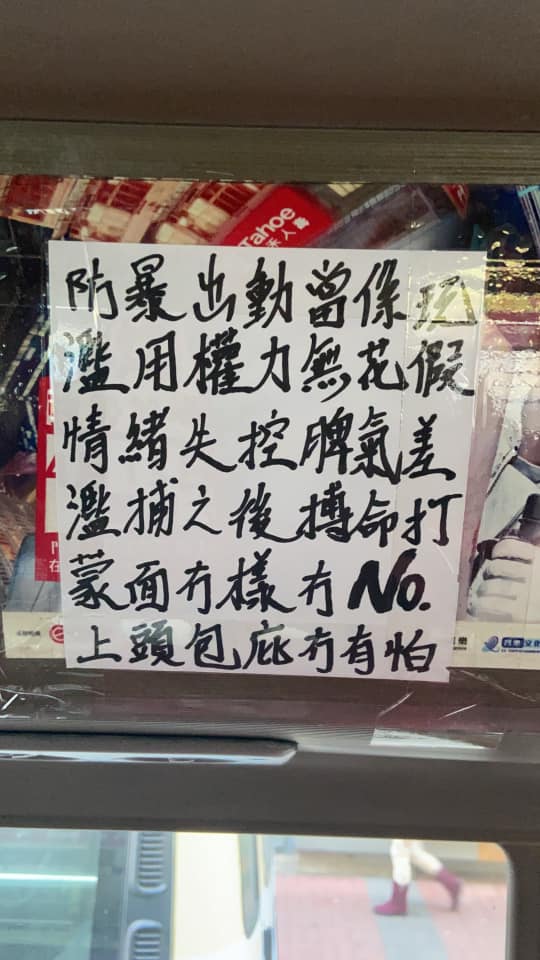 Tahoe
禾人壽
防暴出動當係玩
濫用權力無花假
情緒失控脾氣差
濫捕之後搏命打
蒙面冇樣冇No.
上頭包庇冇有怕